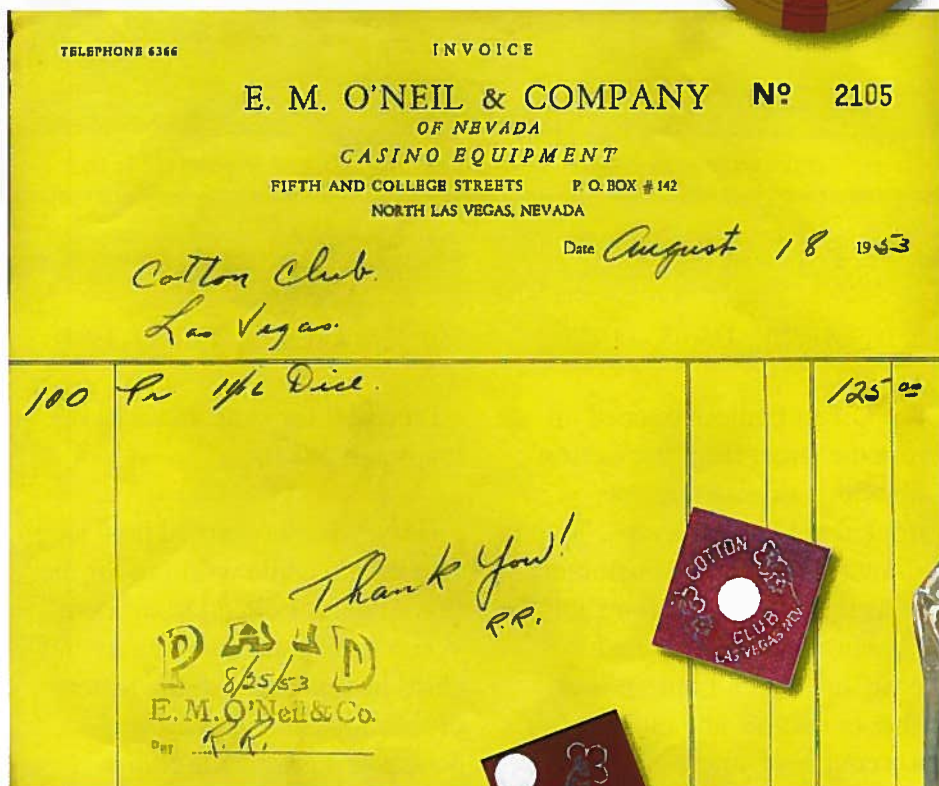 TELEPHONE 6366
INVOICE
E. M. O'NEIL & COMPANY Nº 2105
OF NEVADA
CASINO EQUIPMENT
FIFTH AND COLLEGE STREETS P. O. BOX # 142
NORTH LAS VEGAS, NEVADA
Date August 18 1953
Cotton Club.
Las Vegas.
100 Pr Dice. 125 00
Thank You!
R.R.
PAID
8/25/53
E. M. O'Neil & Co.
Per R.R.
COTTON
CLUB
LAS VEGAS NEV